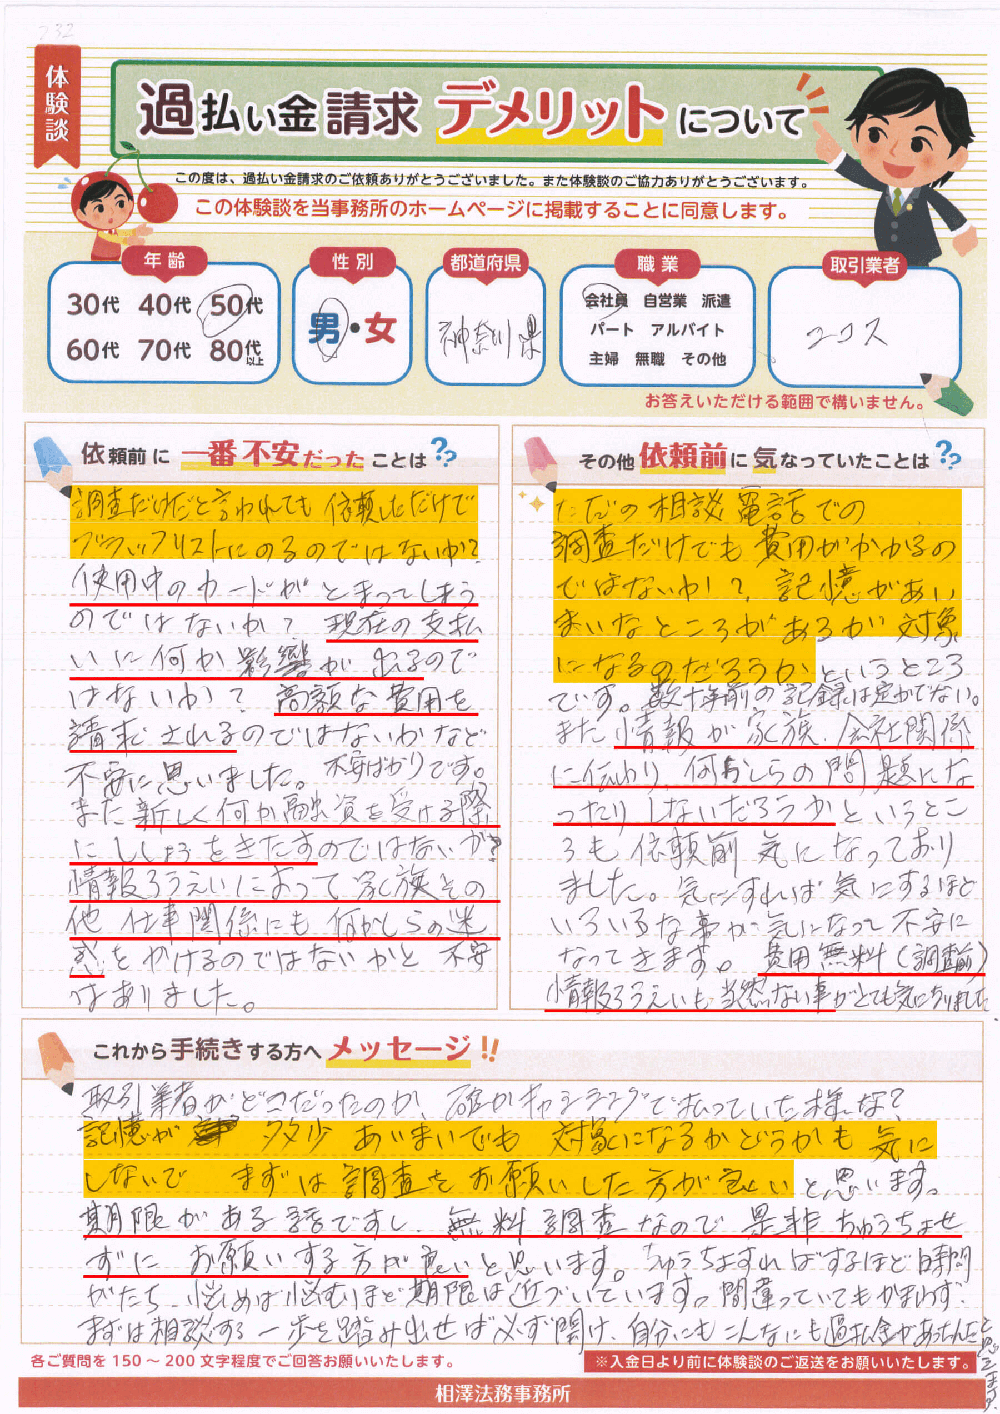 232
体験談
過払い金請求 デメリットについて
この度は、過払い金請求のご依頼ありがとうございました。また体験談のご協力ありがとうございます。
この体験談を当事務所のホームページに掲載することに同意します。
年齢
30代 40代 50代
60代 70代 80代以上
性別
男・女
都道府県
神奈川県
職業
会社員 自営業 派遣
パート アルバイト
主婦 無職 その他
取引業者
ニコス
お答えいただける範囲で構いません。
依頼前に 一番不安だった ことは??
調査だけだと言われても 依頼しただけで
ブラックリストにのるのではないか?
使用中のカードがとまってしまう
のではないか? 現在の支払
いに何か影響が出るので
はないか? 高額な費用を
請求されるのではないかなど
不安に思いました。 不安ばかりです。
また新しく何か融資を受ける際
にししょうをきたすのではないか?
情報ろうえいによって家族その
他 仕事関係にも何かしらの迷
惑をかけるのではないかと 不安
はありました。
その他 依頼前に気なっていたことは??
ただの相談 電話での
調査だけでも費用がかかるの
ではないか!?、記憶があい
まいなところがあるが対象
になるのだろうかというところ
です。数十年前の記録は定かでない。
また情報が家族、会社関係
に伝わり、何かしらの問題にな
ったりしないだろうかというとこ
ろも依頼前気になっており
ました。気にすれば気にするほど
いろいろな事が気になって不安に
なってきます。 費用無料(調査前)
情報ろうえいも当然ない事がとても気になりました.
これから手続きする方へ メッセージ!!
取引業者がどこだったのか、確かキャッシングで払っていた様な?
記憶が 多少 あいまいでも 対象になるかどうかも気に
しないで まずは調査をお願いした方が良いと思います。
期限がある話ですし、無料調査なので是非ちゅうちょせ
ずに お願いする方が良いと思います。ちゅうちょすればするほど時間
がたち、悩めば悩むほど期限は近づいています。間違っていてもかまわず、
まずは相談する一歩を踏み出せば必ず開け、自分にもこんなにも過払金があったんだ
と思います。
各ご質問を150～200文字程度でご回答お願いいたします。
※入金日より前に体験談のご返送をお願いいたします。
相澤法務事務所